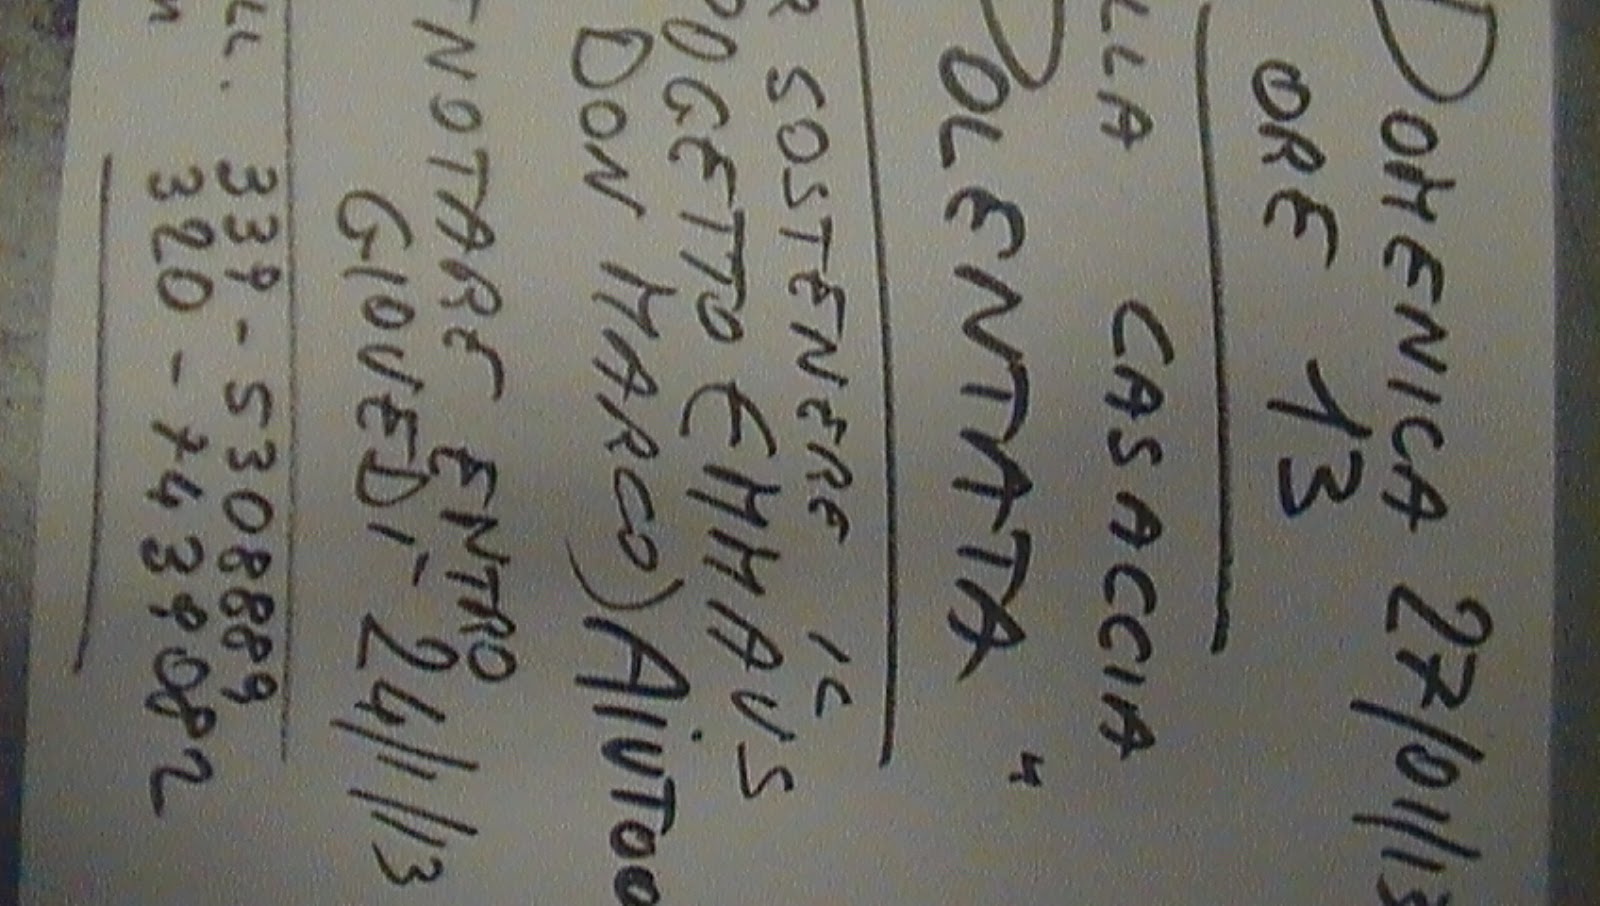 DOMENICA 27/01/13
ORE 13
LLA CASACCIA
POLENTATA "
R SOSTENERE IL
ROGETTO EMMAUS
DON MARCO) AIUTOO
NOTARE ENTRO
GIOVEDI' 24/1/13
LL. 339-5308889
320-7439082